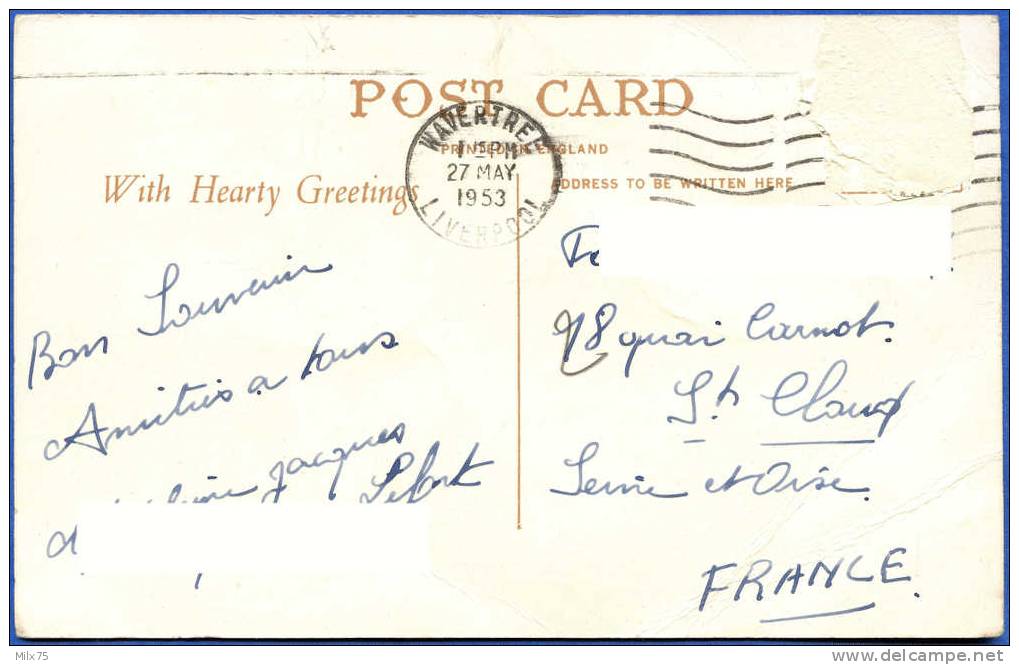 POST CARD
WAVERTREE
PM
27 MAY
1953
LIVERPOOL
PRINTED IN ENGLAND
With Hearty Greetings
ADDRESS TO BE WRITTEN HERE
Bon Souvenir
Amitiés a tous
Jacques
18 quai Carnot.
St. Cloud
Seine et Oise.
FRANCE.
Milx75
www.delcampe.net